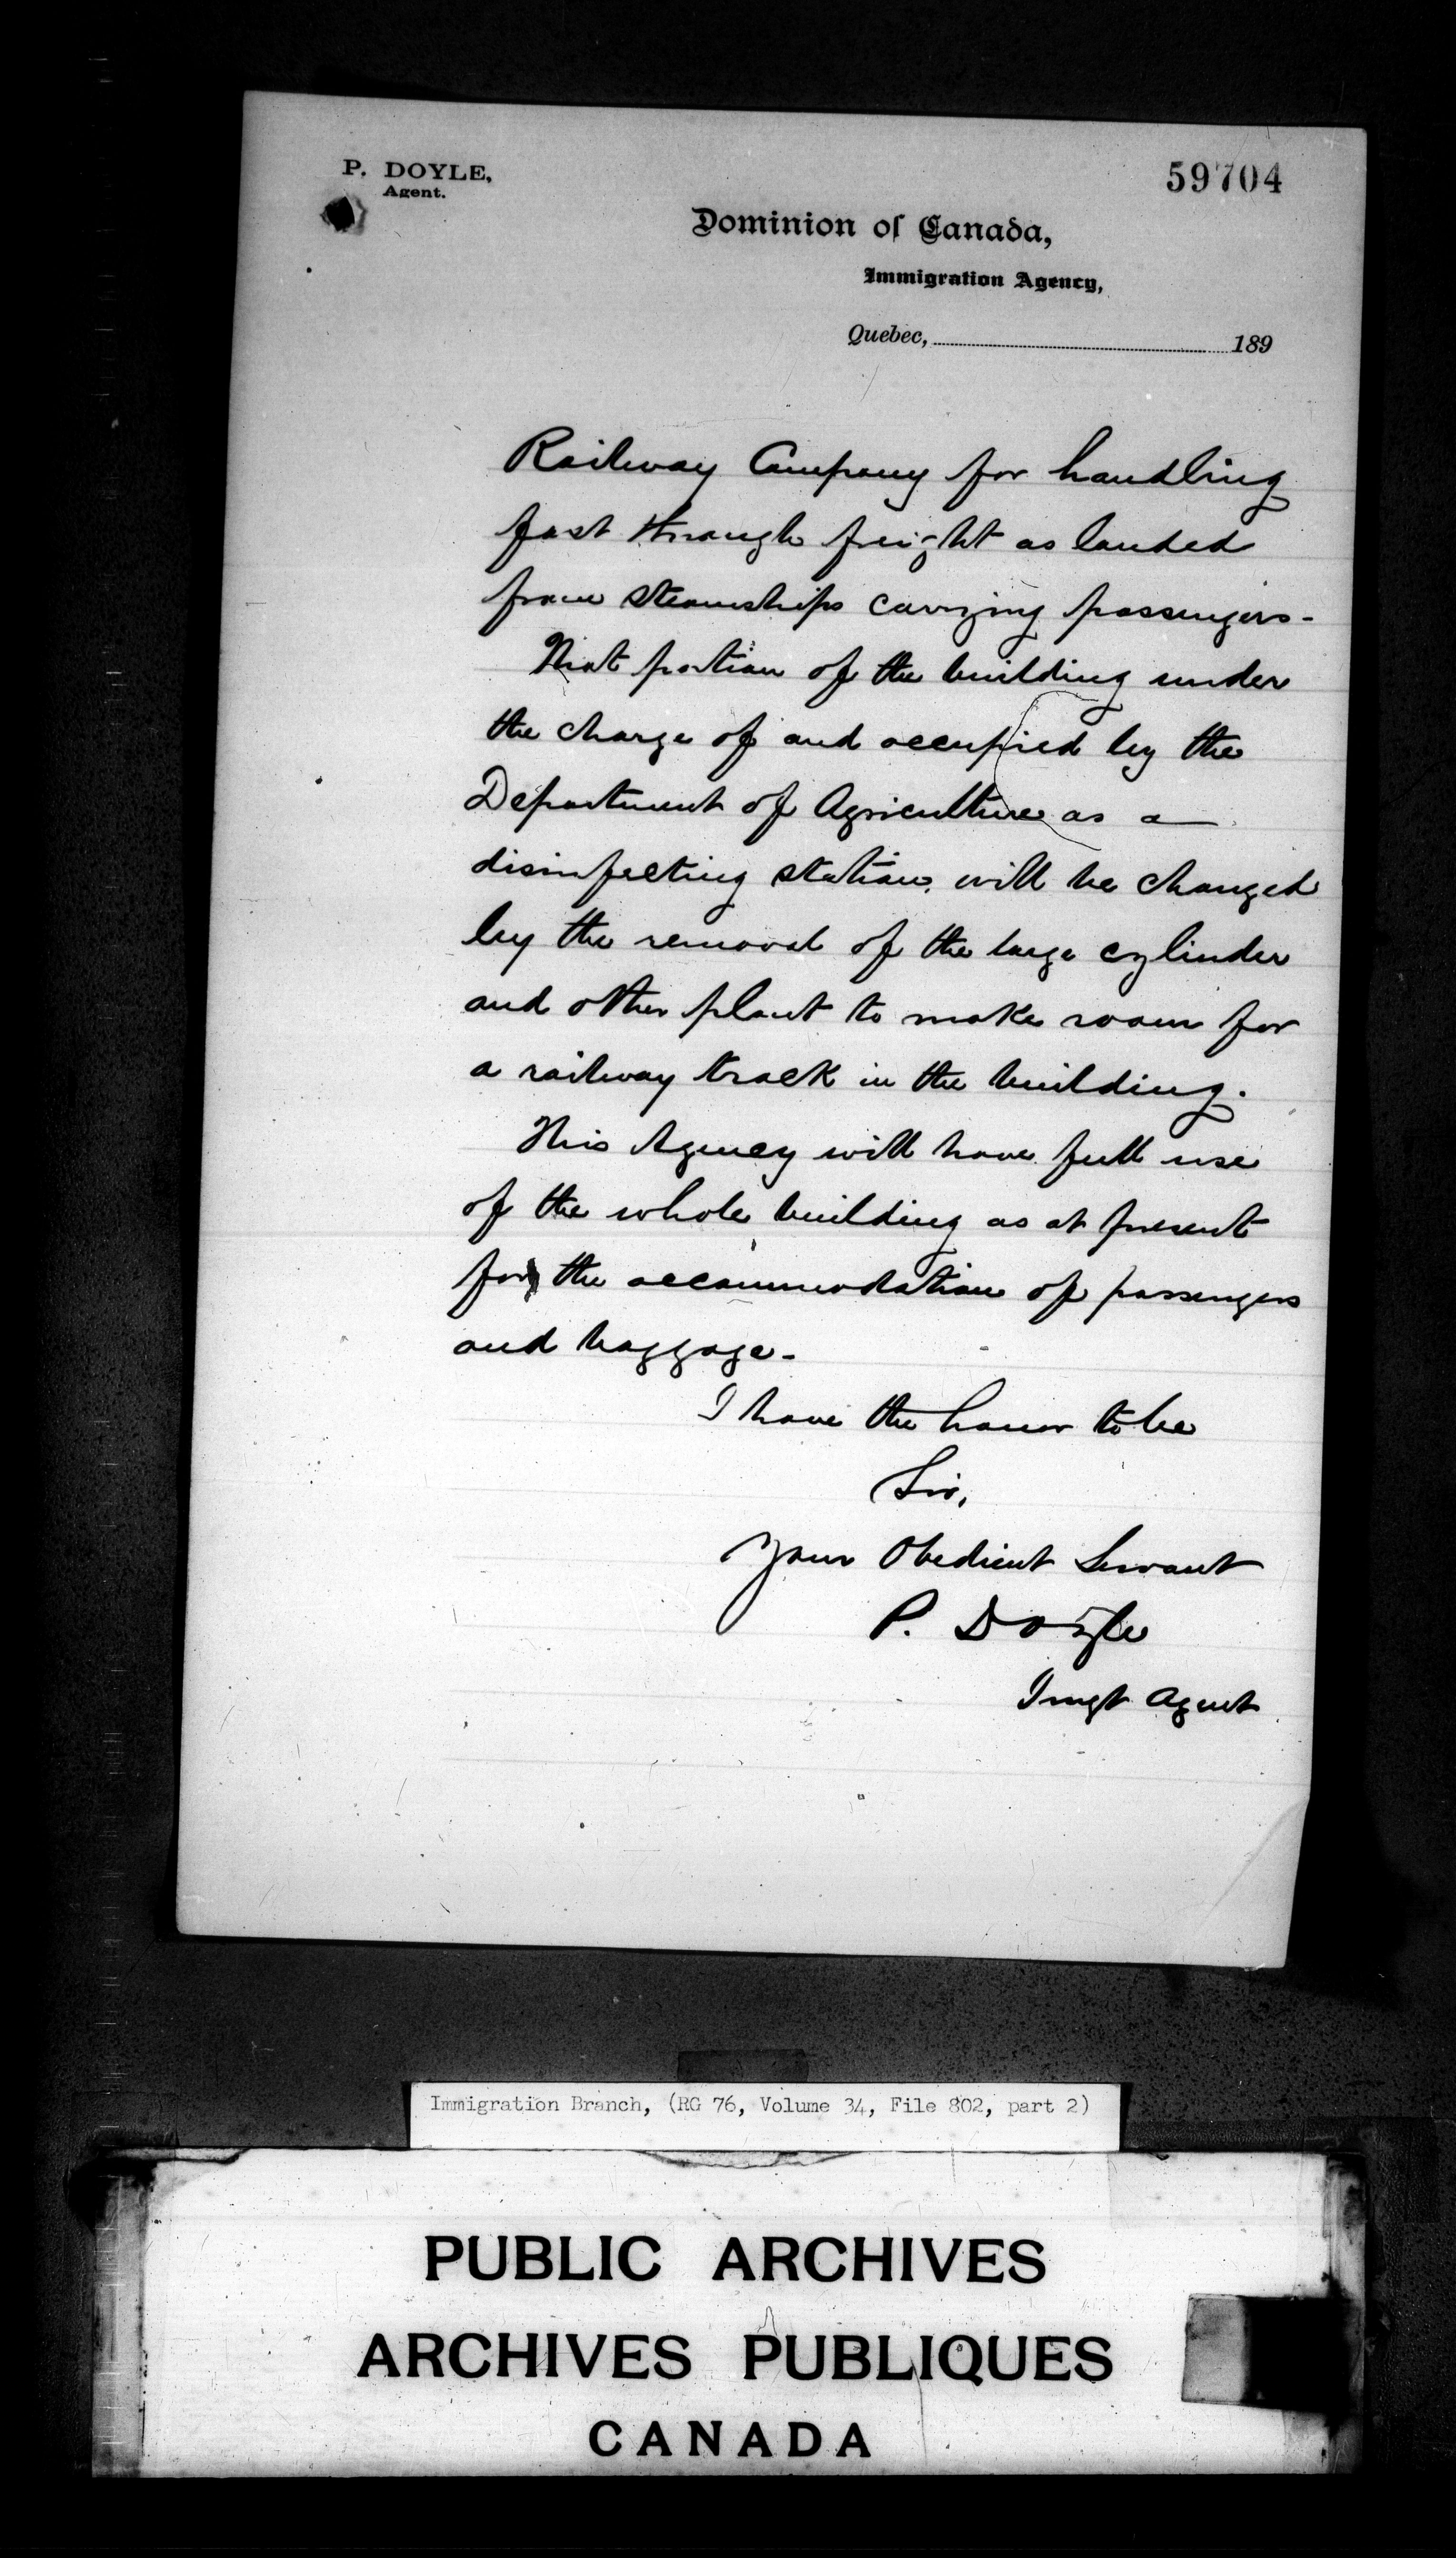 P. DOYLE,
Agent.
59704
Dominion of Canada,
Immigration Agency,
Quebec, 189
Railway Company for handling
fast through freight as landed
from steamships carrying passengers-
That portion of the building under
the charge of and occupied by the
Department of Agriculture as a
disinfecting station, will be changed
by the removal of the large cylinder
and other plant to make room for
a railway track in the building.
This Agency will have full use
of the whole building as at present
for the accommodation of passengers
and baggage-
I have the honor to be
Sir,
Your Obedient Servant
P. Doyle
Imgt Agent
Immigration Branch, (RG 76, Volume 34, File 802, part 2)
PUBLIC ARCHIVES
ARCHIVES PUBLIQUES
CANADA